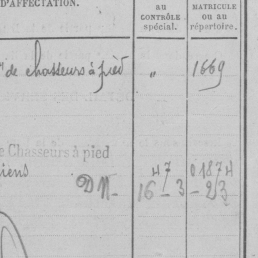 D'AFFECTATION. AU CONTRÔLE spécial. MATRICULE ou au répertoire.
de chasseurs à pied " 1669
e Chasseurs à pied
iens 47 01874
DM- 16 - 3 - 23